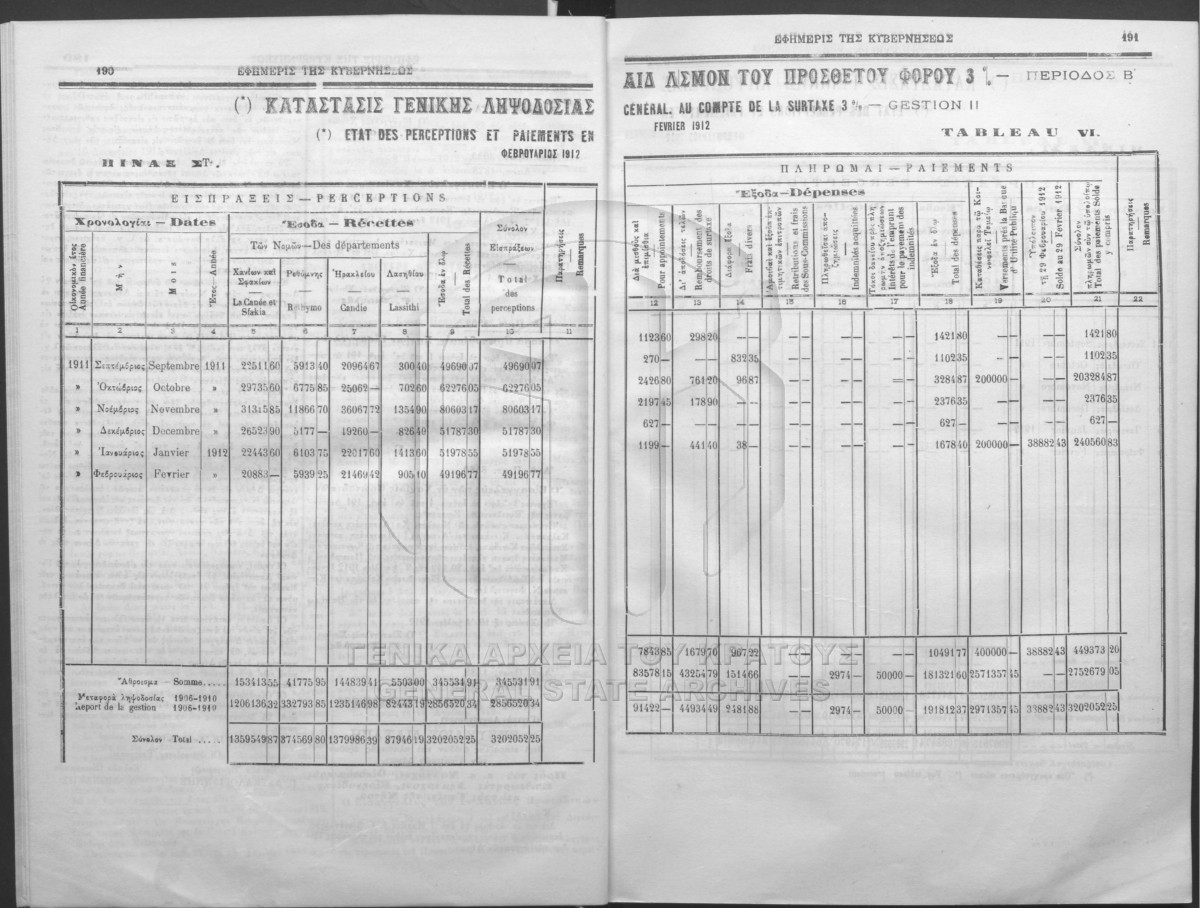 190 ΕΦΗΜΕΡΙΣ ΤΗΣ ΚΥΒΕΡΝΗΣΕΩΣ
(*) ΚΑΤΑΣΤΑΣΙΣ ΓΕΝΙΚΗΣ ΛΗΨΟΔΟΣΙΑΣ
(*) ETAT DES PERCEPTIONS ET PAIEMENTS EN
ΦΕΒΡΟΥΑΡΙΟΣ 1912
ΠΙΝΑΞ ΣΤ'.
ΕΙΣΠΡΑΞΕΙΣ — PERCEPTIONS
Χρονολογίαι — Dates Ἔσοδα — Récettes
Τῶν Νομῶν — Des départements
Οἰκονομικὸν ἔτος Année financière
Μὴν Mois
Ἔτος — Année
Χανίων καὶ Σφακίων — La Canée et Sfakia
Ρεθύμνης — Retnymo
Ἡρακλείου — Candie
Λασηθίου — Lassithi
Ἔσοδα ἐν ὅλῳ — Total des Récettes
Σύνολον Εἰσπράξεων — Total des perceptions
Παρατηρήσεις Remarques
1 2 3 4 5 6 7 8 9 10 11
1911 Σεπτέμβριος Septembre 1911 22511 60 5913 40 20964 67 300 40 49690 07 49690 07
» Ὀκτώβριος Octobre » 29735 60 6775 85 25062 — 702 60 62276 05 62276 05
» Νοέμβριος Novembre » 31315 85 11866 70 36067 72 1354 90 80603 17 80603 17
» Δεκέμβριος Decembre » 26523 90 5177 — 19260 — 826 40 51787 30 51787 30
» Ἰανουάριος Janvier 1912 22443 60 6103 75 22017 60 1413 60 51978 55 51978 55
» Φεβρουάριος Fevrier » 20883 — 5939 25 21469 42 905 10 49196 77 49196 77
Ἄθροισμα — Somme..... 153413 55 41775 95 144839 41 5503 00 345531 91 345531 91
Μεταφορὰ ληψοδοσίας 1906-1910
Report de la gestion 1906-1910 1206136 32 332793 85 1235146 98 82443 19 2856520 34 2856520 34
Σύνολον Total ..... 1359549 87 374569 80 1379986 39 87946 19 3202052 25 3202052 25
ΕΦΗΜΕΡΙΣ ΤΗΣ ΚΥΒΕΡΝΗΣΕΩΣ 191
ΔΙΑ ΛΣΜΟΝ ΤΟΥ ΠΡΟΣΘΕΤΟΥ ΦΟΡΟΥ 3 % — ΠΕΡΙΟΔΟΣ Β'
GÉNÉRAL. AU COMPTE DE LA SURTAXE 3 % — GESTION II
FEVRIER 1912
TABLEAU VI.
ΠΛΗΡΩΜΑΙ — PAIEMENTS
Ἔξοδα — Dépenses
Διὰ μισθοὺς καὶ ἐπιμίσθια Pour appointements
Remboursement des droits de surtaxe
Διάφορα ἔξοδα Frais divers
Rétributions et frais des Sous-Commissions
Indemnités acquittées
Intérêts de l'emprunt pour le payement des indemnités
Ἔξοδα ἐν ὅλῳ Total des dépenses
Versements près la Banque d'Utilité Publique
τῇ 29 Φεβρουαρίου 1912 Solde au 29 Fevrier 1912
Total des paiements Solde y compris
Παρατηρήσεις Remarques
12 13 14 15 16 17 18 19 20 21 22
1123 60 298 20 — — — — 1421 80 — — — — 1421 80
270 — — — 832 35 1102 35 — — — — 1102 35
2426 80 761 20 96 87 — — — — 3284 87 200000 — — — 203284 87
2197 45 178 90 — — — — 2376 35 — — — — 2376 35
627 — — — — — 627 — — — — — 627 —
1199 — 441 40 38 — — — 1678 40 200000 — 38882 43 240560 83
7843 85 1679 70 967 22 10491 77 400000 — 38882 43 449373 20
83578 15 43254 79 1514 66 — — 2974 — 50000 — 181321 60 2571357 45 — — 2752679 05
91422 — 44934 49 2481 88 — — 2974 — 50000 — 191812 37 2971357 45 38882 43 3202052 25
ΓΕΝΙΚΑ ΑΡΧΕΙΑ ΤΟΥ ΚΡΑΤΟΥΣ
GENERAL STATE ARCHIVES